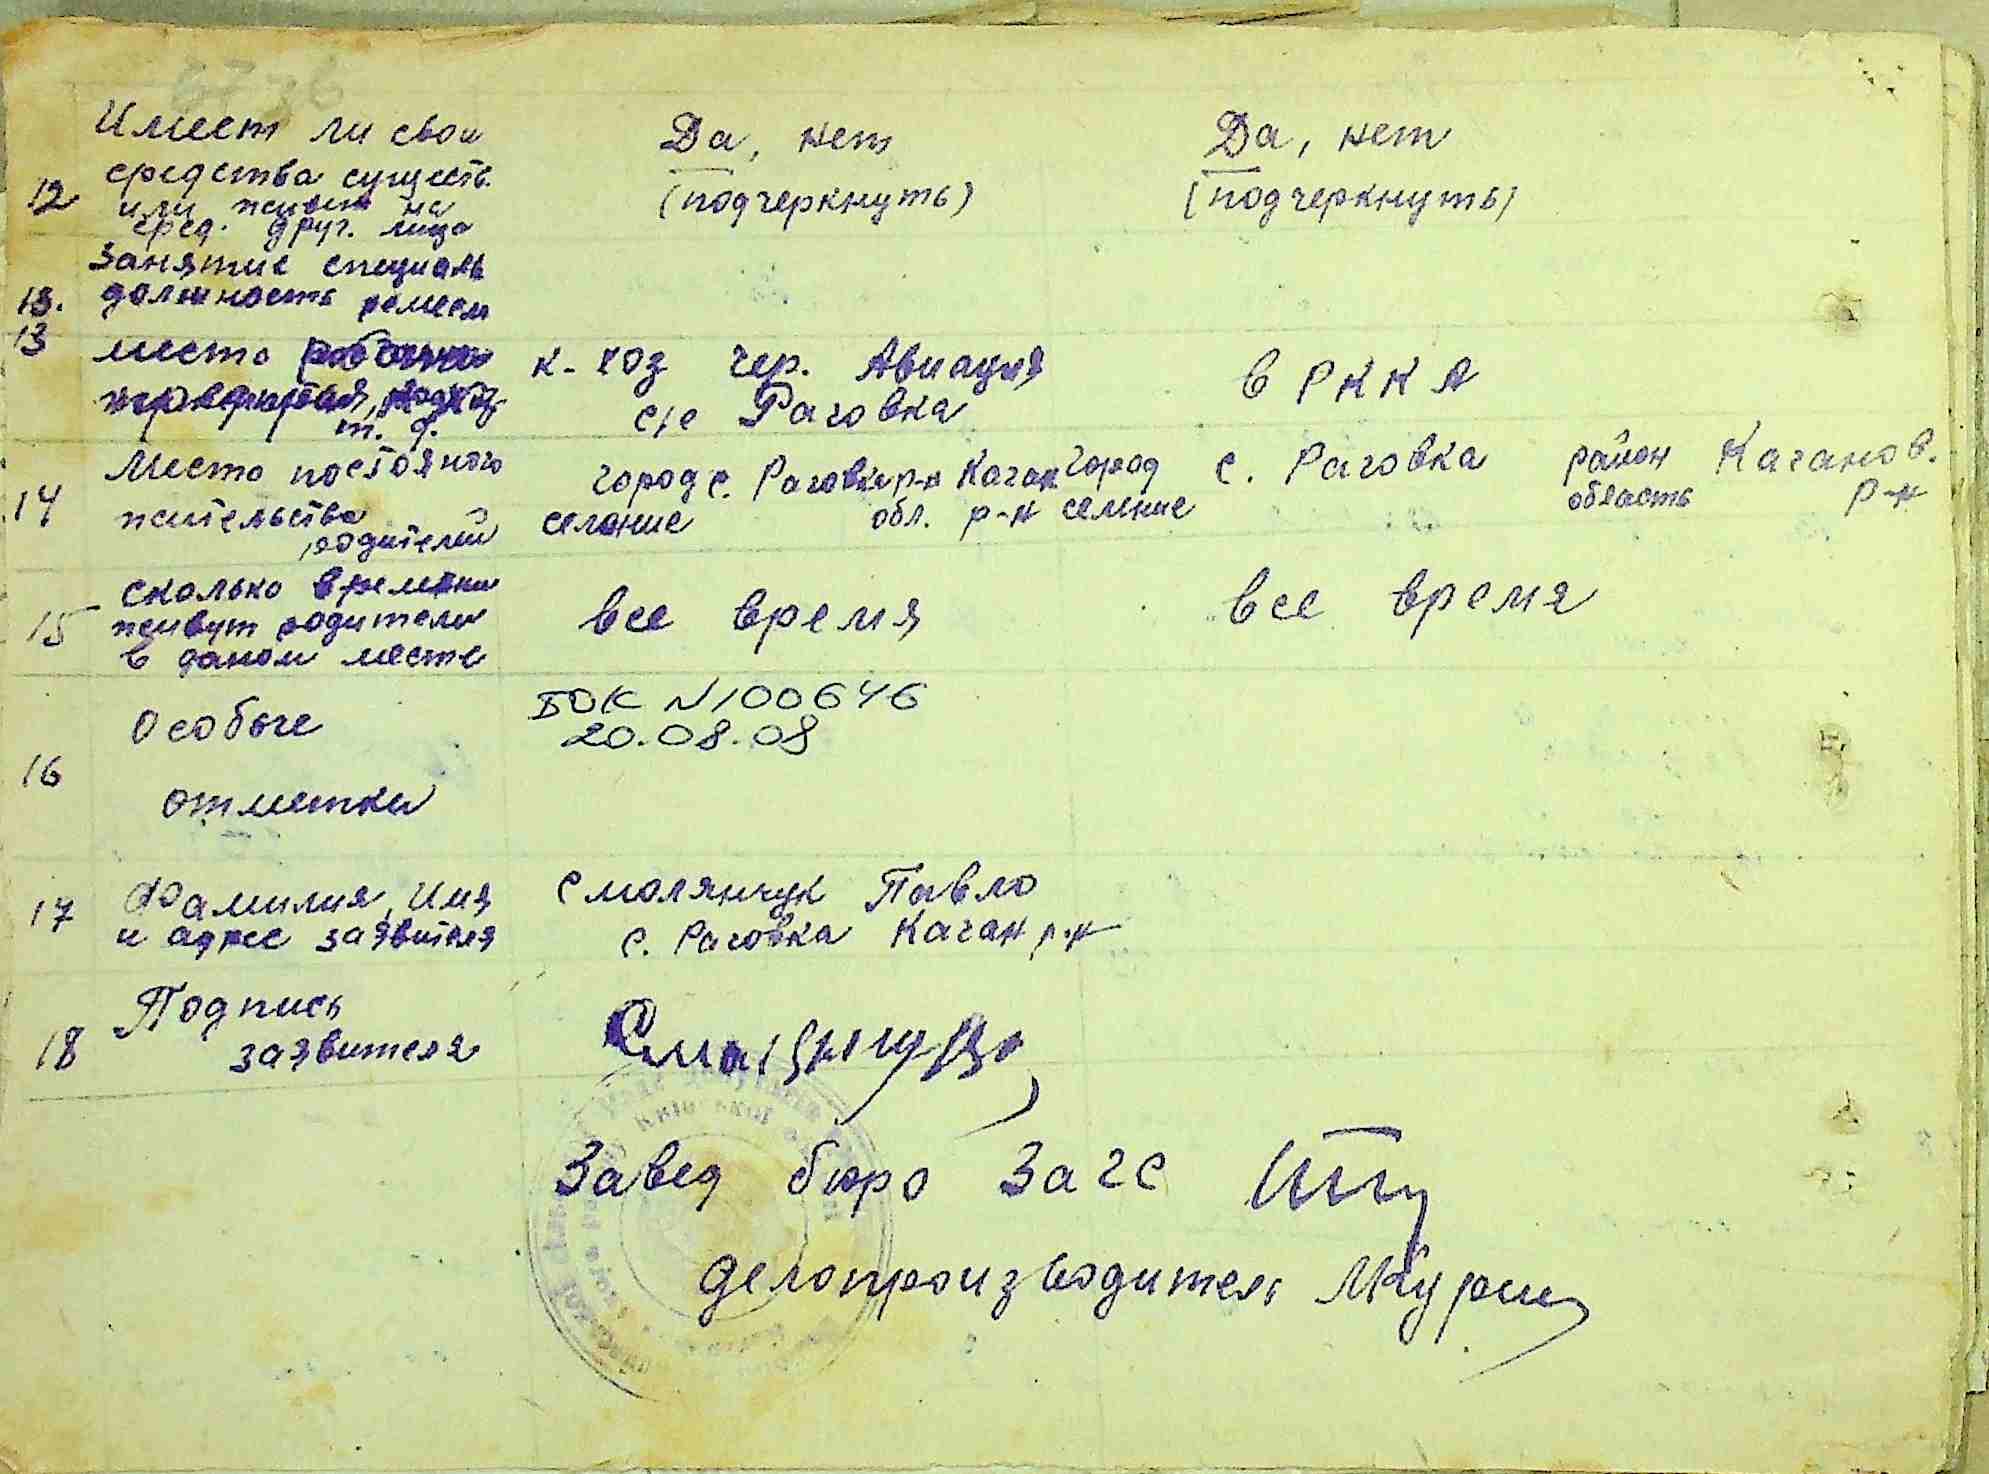 12
Имеет ли свои
средства существ.
или живет на
сред. друг. лица
Да, нет
(подчеркнуть)
Да, нет
(подчеркнуть)
13.
Занятие специаль
должность ремесл
13
место
т. д.
к-хоз чер. Авиация
с/с Раговка
в РККА
14
Место постояного
жительства
родителей
город с. Раговка р-н Каган
селение обл. р-н
город с. Раговка район Каганов.
селение область р-н
15
сколько времени
живут родители
в даном месте
все время
все время
16
Особые
отметки
БОК N100646
20.08.08
17
Фамилия, Имя
и адрес заявителя
Смолянчук Павло
с. Раговка Каган р-н
18
Подпись
заявителя
Завед бюро Загс
делопроизводитель